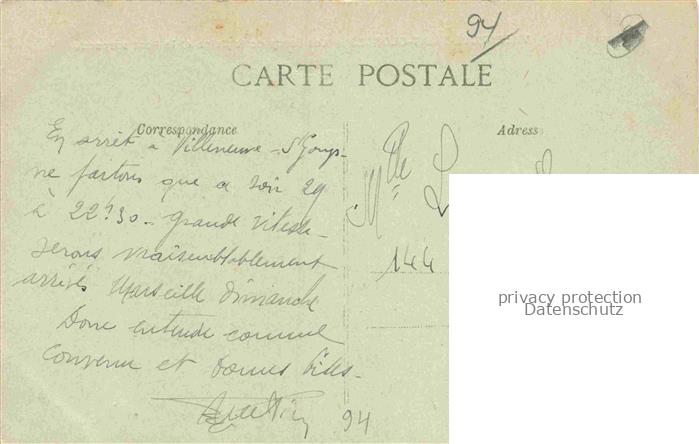 94
CARTE POSTALE
Correspondance
Adresse
En arrêt a Villeneuve - St Georges
ne partons que a soir 29
à 22h30 - grande vitesse -
serons vraisemblablement
arrivés Marseille dimanche
Donc entendu comme
convenu et bonnes
94
Mlle
144
privacy protection
Datenschutz